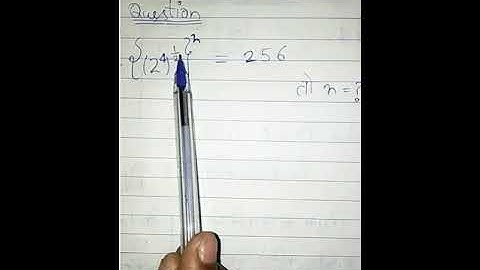 Question
{(2⁴)^½}ⁿ = 256
तो n = ?